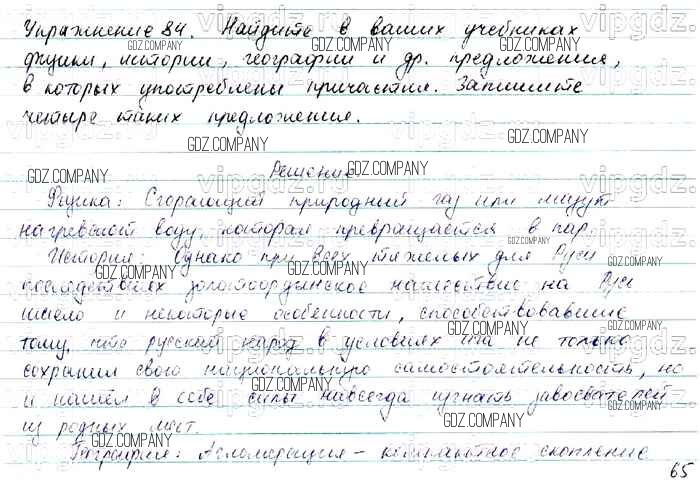 Упражнение 84. Найдите в ваших учебниках
физики, истории, географии и др. предложения,
в которых употреблены причастия. Запишите
четыре таких предложения.
Решение
Физика: Сгорающий природный газ или мазут
нагревают воду, которая превращается в пар.
История: Однако при всех тяжелых для Руси
последствиях золотоордынское нашествие на Русь
имело и некоторые особенности, способствовавшие
тому, что русский народ в условиях ига не только
сохранил свою национальную самостоятельность, но
и нашёл в себе силы навсегда изгнать завоевателей
из родных мест.
География: Агломерация – компактное скопление
65